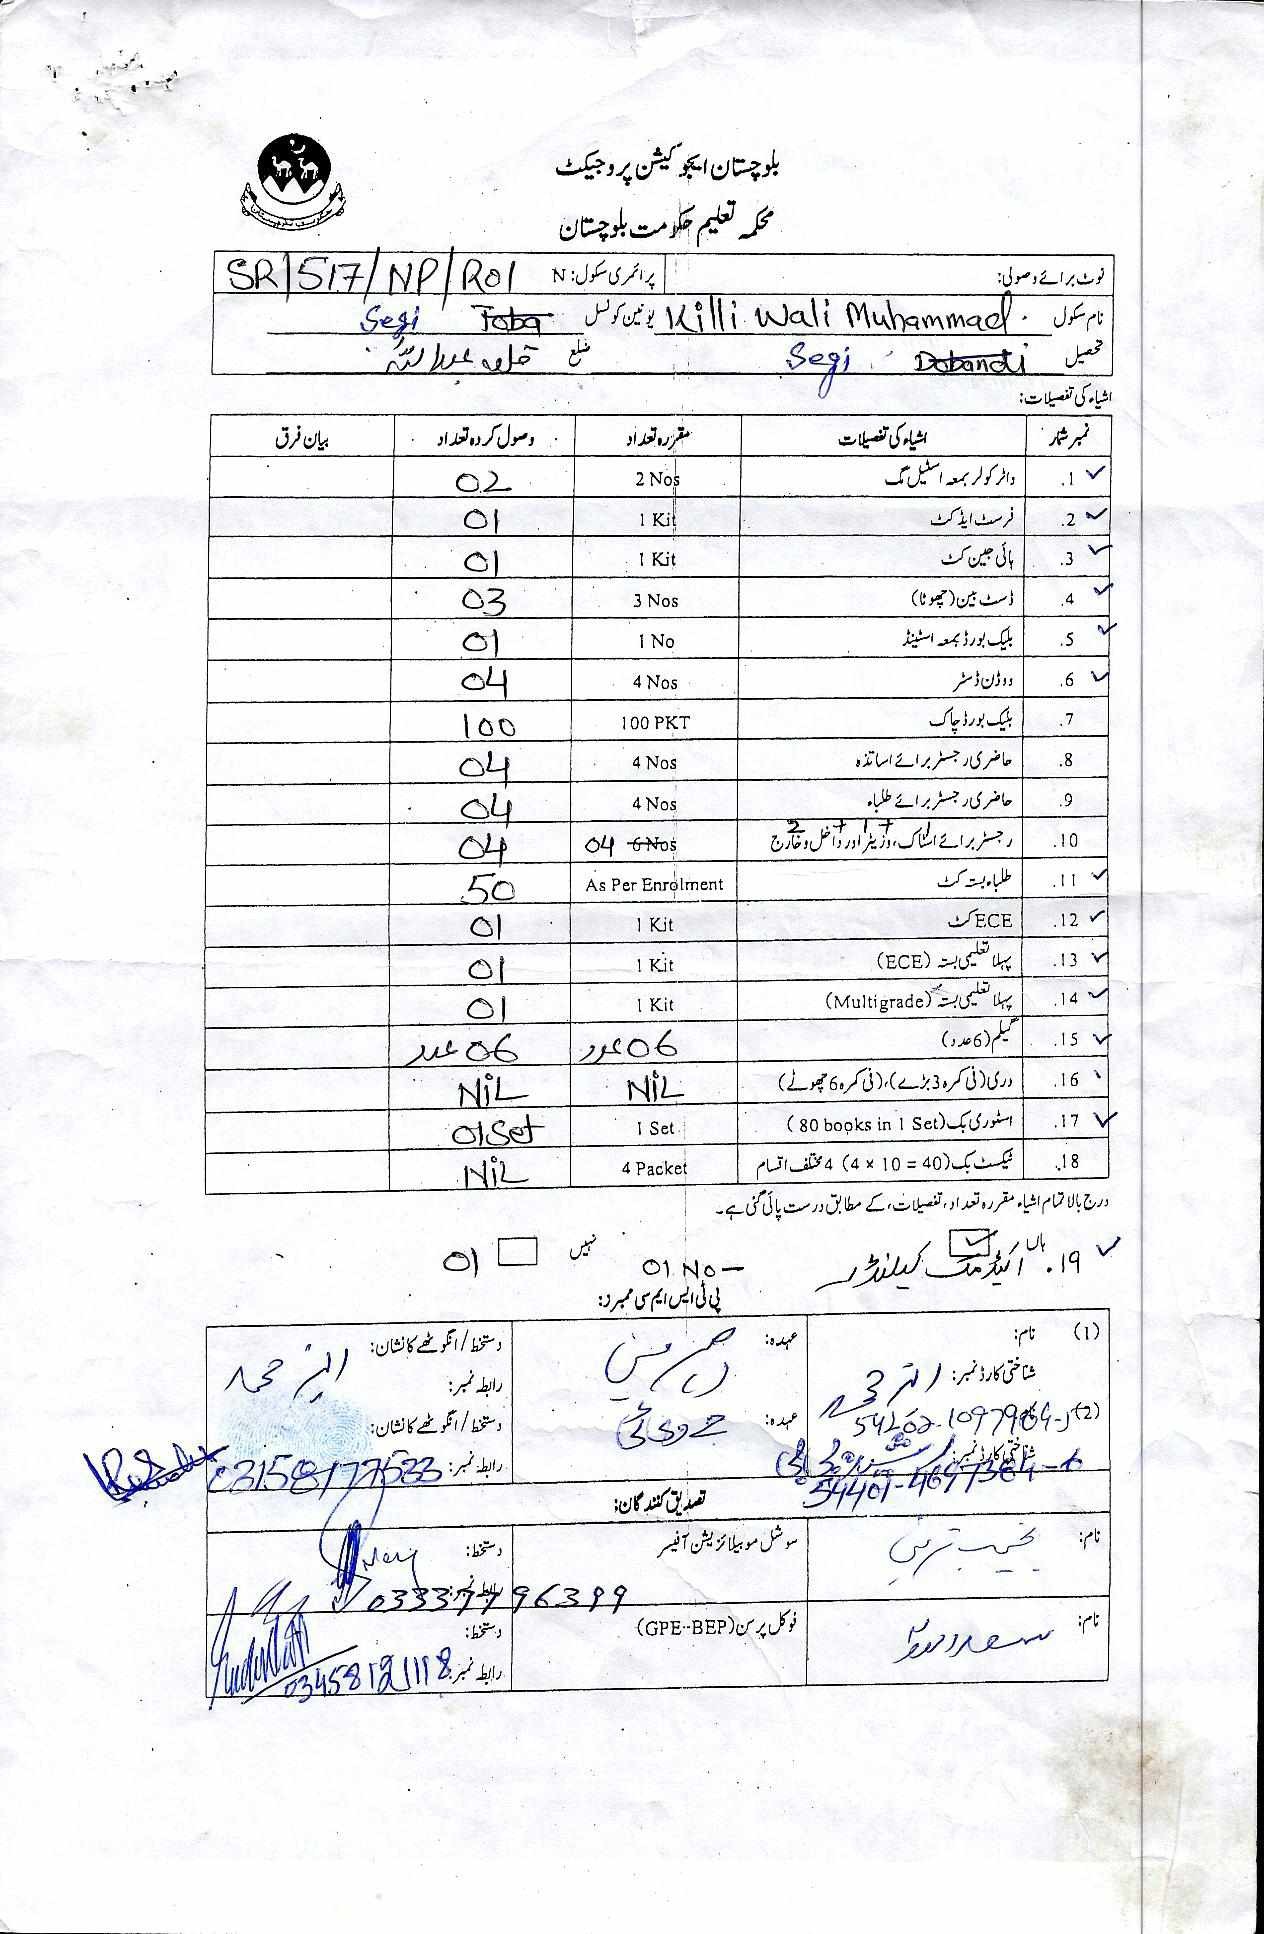 بلوچستان ایجوکیشن پروجیکٹ
محکمہ تعلیم حکومت بلوچستان
نوٹ برائے وصولی: پرائمری سکول: N SR/517/NP/R01
نام سکول Killi Wali Muhammad یونین کونسل Toba Segi
تحصیل Dobandi Segi ضلع قلعہ عبداللہ
اشیاء کی تفصیلات:
نمبر شمار اشیاء کی تفصیلات مقررہ تعداد وصول کردہ تعداد بیان فرق
1. واٹر کولر بمعہ اسٹیل مگ 2 Nos 02
2. فرسٹ ایڈ کٹ 1 Kit 01
3. ہائی جین کٹ 1 Kit 01
4. ڈسٹ بین (چھوٹا) 3 Nos 03
5. بلیک بورڈ بمعہ اسٹینڈ 1 No 01
6. ووڈن ڈسٹر 4 Nos 04
7. بلیک بورڈ چاک 100 PKT 100
8. حاضری رجسٹر برائے اساتذہ 4 Nos 04
9. حاضری رجسٹر برائے طلباء 4 Nos 04
2 + 1 + 1
10. رجسٹر برائے اسٹاک، وزیٹر اور داخل و خارج 6 Nos 04 04
11. طلباء بستہ کٹ As Per Enrolment 50
12. ECE کٹ 1 Kit 01
13. پہلا تعلیمی بستہ (ECE) 1 Kit 01
14. پہلا تعلیمی بستہ (Multigrade) 1 Kit 01
15. گیلم (6 عدد) 06 عدد 06 عدد
16. دری (فی کمرہ 3 بڑے)، (فی کمرہ 6 چھوٹے) NiL NiL
17. اسٹوری بک (80 books in 1 Set) 1 Set 01 Set
18. ٹیکسٹ بک (4 × 10 = 40) 4 مختلف اقسام 4 Packet NiL
درج بالا تمام اشیاء مقررہ تعداد، تفصیلات، کے مطابق درست پائی گئی ہے۔
ہاں نہیں
19. اکیڈمک کیلنڈر 01 No 01
پی ٹی ایس ایم سی ممبرز:
(1) نام: عہدہ: دستخط / انگوٹھے کا نشان:
شناختی کارڈ نمبر: رابطہ نمبر:
(2) عہدہ: دستخط / انگوٹھے کا نشان:
شناختی کارڈ نمبر: رابطہ نمبر: 03158177533
تصدیق کنندگان:
نام: سوشل موبیلائزیشن آفیسر دستخط:
رابطہ نمبر: 03337796399
نام: فوکل پرسن (GPE-BEP) دستخط:
رابطہ نمبر: